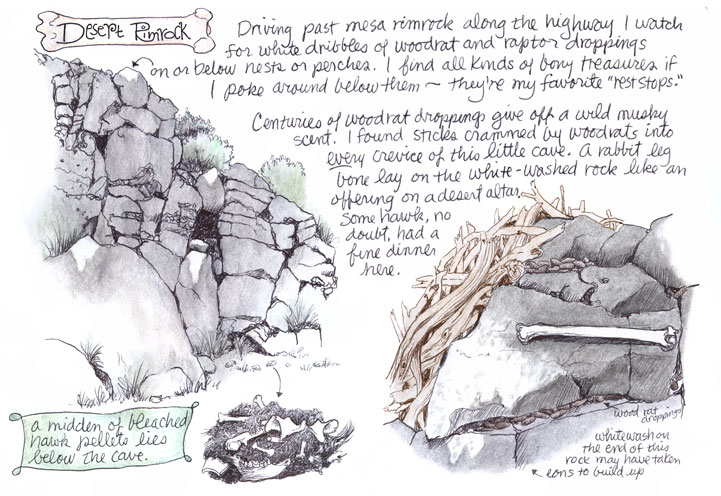 Desert Rimrock
Driving past mesa rimrock along the highway I watch
for white dribbles of woodrat and raptor droppings
on or below nests or perches. I find all kinds of bony treasures if
I poke around below them ~ they're my favorite "rest stops."
Centuries of woodrat droppings give off a wild musky
scent. I found sticks crammed by woodrats into
every crevice of this little cave. A rabbit leg
bone lay on the white-washed rock like an
offering on a desert altar.
Some hawk, no
doubt, had a
fine dinner
here.
a midden of bleached
hawk pellets lies
below the cave.
wood rat
droppings
whitewash on
the end of this
rock may have taken
eons to build up